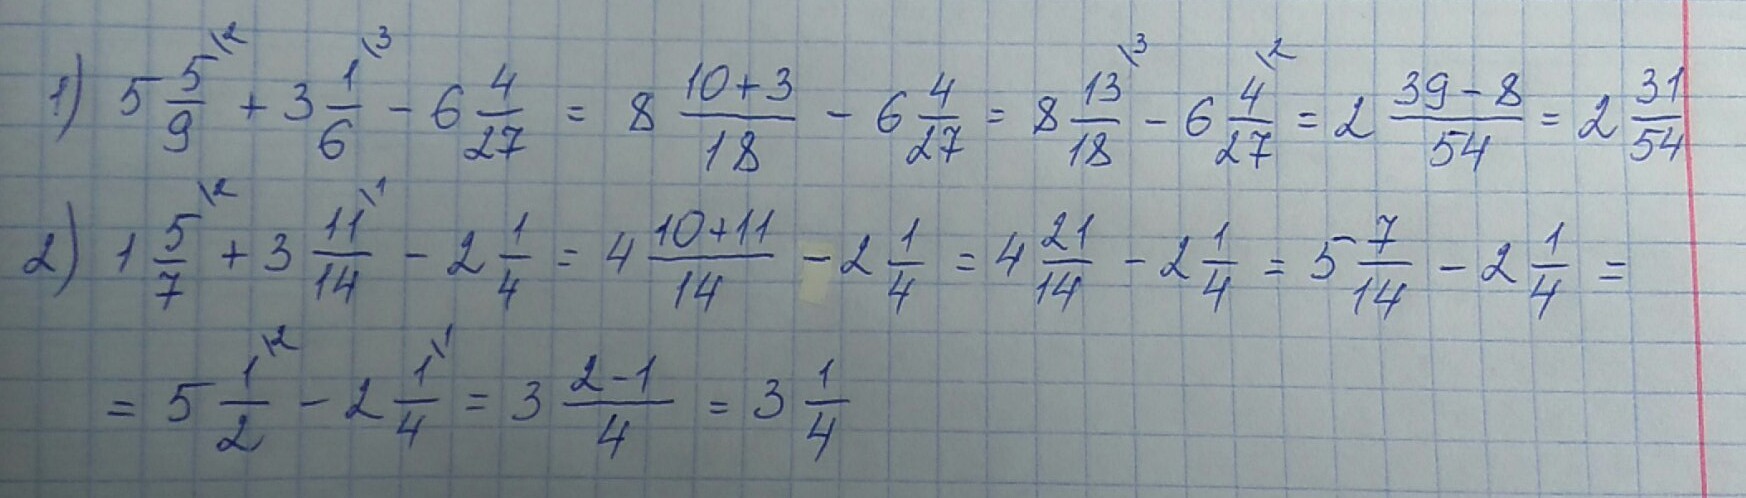 1) 5 5/9 \2 + 3 1/6 \3 - 6 4/27 = 8 (10+3)/18 - 6 4/27 = 8 13/18 \3 - 6 4/27 \2 = 2 (39-8)/54 = 2 31/54
2) 1 5/7 \2 + 3 11/14 \1 - 2 1/4 = 4 (10+11)/14 - 2 1/4 = 4 21/14 - 2 1/4 = 5 7/14 - 2 1/4 =
= 5 1/2 \2 - 2 1/4 \1 = 3 (2-1)/4 = 3 1/4